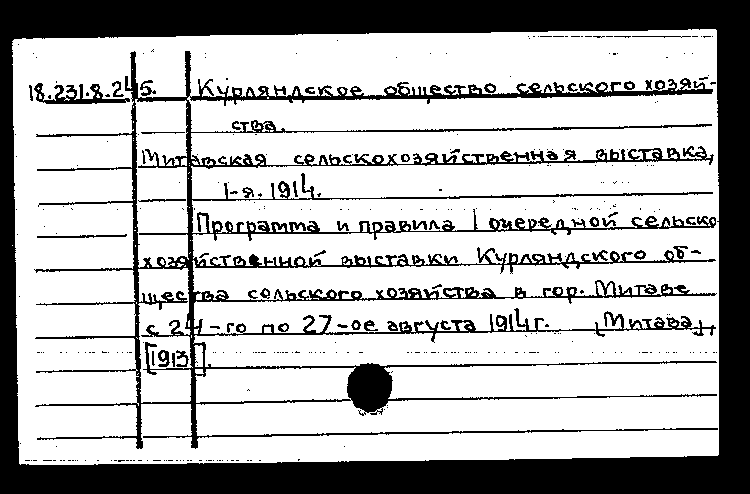 18.231.8.245. Курляндское общество сельского хозяй-
ства.
Митавская сельскохозяйственная выставка,
1-я. 1914.
Программа и правила I очередной сельско
хозяйственной выставки Курляндского об-
щества сельского хозяйства в гор. Митаве
с 24-го по 27-ое августа 1914 г. [Митава],
[1913].